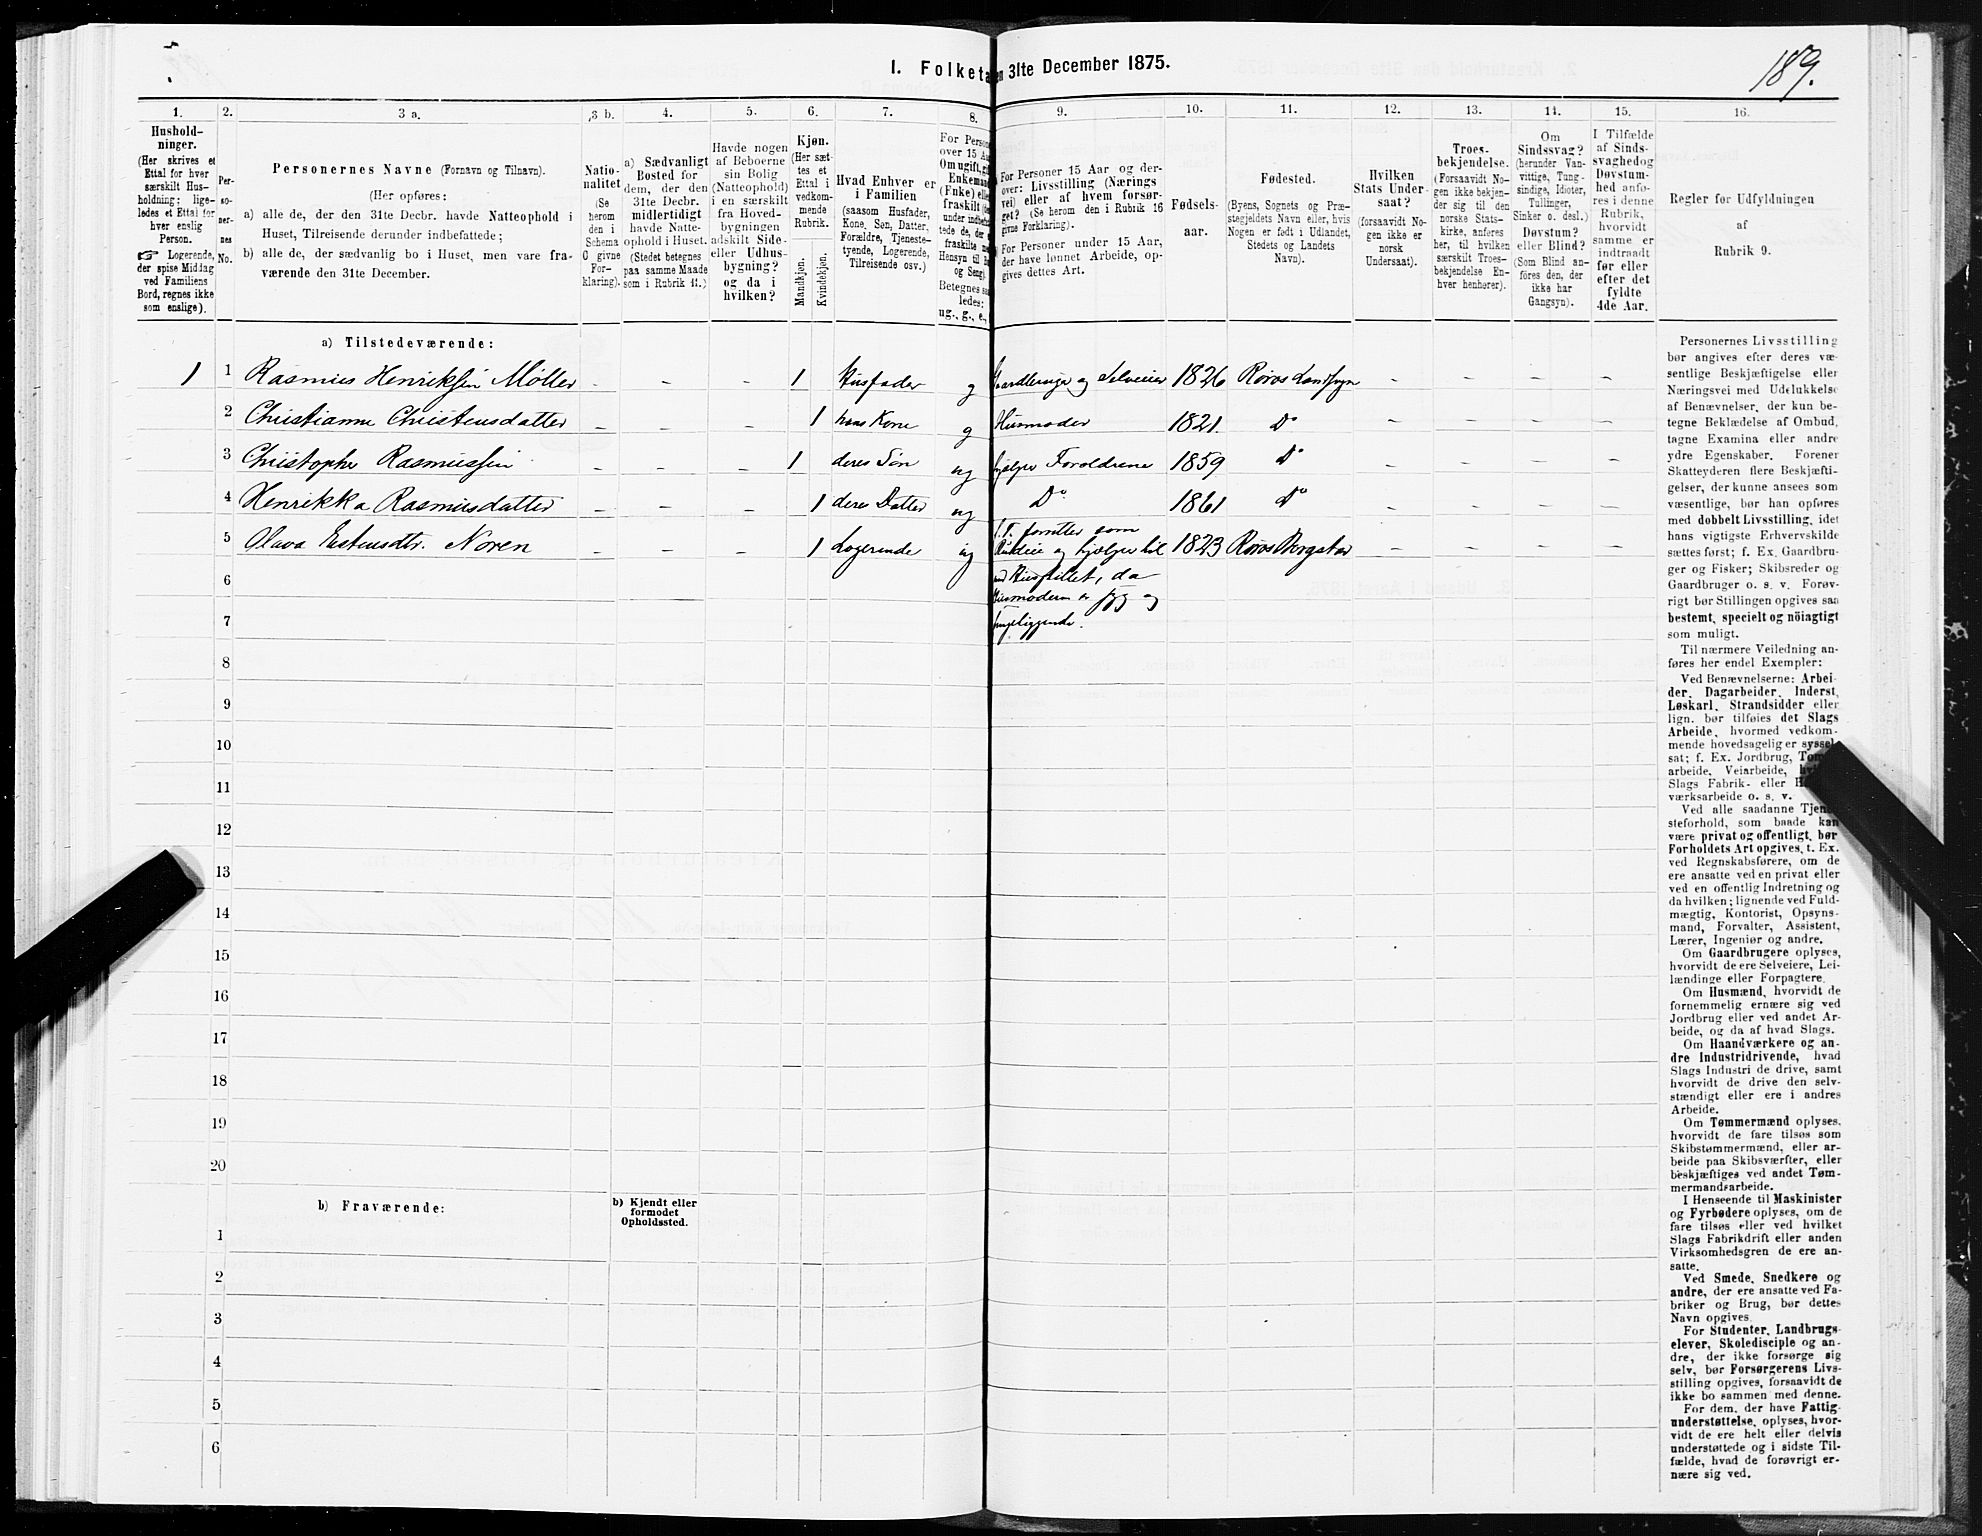 I. Folketa en 31te December 1875.
189.
1. 2. 3 a. 3 b. 4. 5. 6. 7. 8. 9. 10. 11. 12. 13. 14. 15. 16.
Hushold-
ninger.
(Her skrives et
Ettal for hver
særskilt Hus-
holdning; lige-
ledes et Ettal for
hver enslig
Person.
☞ Logerende,
der spise Middag
ved Familiens
Bord, regnes ikke
som enslige).
Per-
so-
ner-
nes
No.
Personernes Navne (Fornavn og Tilnavn).
(Her opføres:
a) alle de, der den 31te Decbr. havde Natteophold i
Huset, Tilreisende derunder indbefattede;
b) alle de, der sædvanlig bo i Huset, men vare fra-
værende den 31te December.
Natio-
nalitet
(Se
herom
den i
Schema
C givne
For-
klaring).
a) Sædvanligt
Bosted for
dem, der den
31te Decbr.
midlertidigt
havde Natte-
ophold i Huset.
(Stedet betegnes
paa samme Maade
som i Rubrik 11.)
Havde nogen
af Beboerne
sin Bolig
(Natteophold)
i en særskilt
fra Hoved-
bygningen
adskilt Side-
eller Udhus-
bygning?
og da i
hvilken?
Kjøn.
(Her sæt-
tes et
Ettal i
vedkom-
mende
Rubrik.
Mandkjøn.
Kvindekjøn.
Hvad Enhver er
i Familien
(saasom Husfader,
Kone, Søn, Datter,
Forældre, Tjeneste-
tyende, Logerende,
Tilreisende osv.)
For Person
over 15 Aa
Om ugift, gif
Enkeman
(Fnke) elle
fraskilt
under indbefat
tede de, der e
fraskilte
Hensyn til B
og Seng).
Betegnes saa
ledes:
ug., g., e.,
For Personer 15 Aar og der-
over: Livsstilling (Nærings
vei) eller af hvem forsør-
get? (Se herom den i Rubrik 16
givne Forklaring).
For Personer under 15 Aar,
der have lønnet Arbeide, op-
gives dettes Art.
Fødsels-
aar.
Fødested.
(Byens, Sognets og Præ-
stegjeldets Navn eller, hvis
Nogen er født i Udlandet,
Stedets og Landets
Navn).
Hvilken
Stats Under-
saat?
(forsaavidt No-
gen ikke er
norsk
Undersaat).
Troes-
bekjendelse.
(Forsaavidt No-
gen ikke bekjen-
der sig til den
norske Stats-
kirke, anføres
her, til hvilken
særskilt Troes-
bekjendelse En-
hver henhører).
Om
Sindssvag?
(herunder Van-
vittige, Tung-
sindige, Idioter,
Tullinger,
Sinker o. desl.)
Døvstum?
eller Blind?
(Som Blind an-
føres den, der
ikke har
Gangsyn).
I Tilfælde
af Sinds-
svaghed og
Døvstum-
hed anfø-
res i denne
Rubrik,
hvorvidt
samme er
indtraadt
før eller
efter det
fyldte
4de Aar.
Regler før Udfyldningen
af
Rubrik 9.
a) Tilstedeværende:
1 1 Rasmus Henriksen Møller - - - 1 Husfader g Gaardbruger og Selveier 1826 Røros Landsogn - - - -
2 Christianne Christensdatter - - - 1 hans Kone g Husmoder 1821. Do - - - -
3 Christopher Rasmussen - - - 1 deres Søn ug hjælper Forældrene 1859 Do - - - -
4 Henrikka Rasmusdatter - - - 1 deres Datter ug Do 1861 Do - - - -
5 Olava Estensdtr. Noren - - - 1 Logerende ug 1823 Røros Bergstad - - - -
som
og hjælper til
Husstillet, da
Husmoderen er syg og
sengeliggende.
6
7
8
9
10
11
12
13
14
15
16
17
18
19
20
b) Fraværende:
b) Kjendt eller
formodet
Opholdssted.
1
2
3
4
5
6
Personernes Livsstilling
bør angives efter deres væ-
sentlige Beskjæftigelse eller
Næringsvei med Udelukkelse
af Benævnelser, der kun be-
tegne Beklædelse af Ombud,
tagne Examina eller andre
ydre Egenskaber. Forener
Skatteyderen flere Beskjæfti-
gelser, der kunne ansees som
væsentlige, bør han opføres
med dobbelt Livsstilling, idet
hans vigtigste Erhvervskilde
sættes først; f. Ex. Gaardbru-
ger og Fisker; Skibsreder og
Gaardbruger o. s. v. Forøv-
rigt bør Stillingen opgives saa
bestemt, specielt og nöiagtigt
som muligt.
Til nærmere Veiledning an-
føres her endel Exempler:
Ved Benævnelserne: Arbei-
der, Dagarbeider, Inderst,
Løskarl, Strandsidder eller
lign. bør tilføies det Slags
Arbeide, hvormed vedkom-
mende hovedsagelig er syssel-
sat; f. Ex. Jordbrug,
arbeide, Veiarbeide,
Slags Fabrik- eller
værksarbeide o. s. v.
Ved alle saadanne Tjene-
steforhold, som baade kan
være privat og offentligt, bør
Forholdets Art opgives, t. Ex.
ved Regnskabsførere, om de
ere ansatte ved en privat eller
ved en offentlig Indretning og
da hvilken; lignende ved Fuld-
mægtig, Kontorist, Opsyns-
mand, Forvalter, Assistent,
Lærer, Ingeniør og andre.
Om Gaardbrugere oplyses,
hvorvidt de ere Selveiere, Lei-
lændinge eller Forpagtere.
Om Husmænd, hvorvidt de
fornemmelig ernære sig ved
Jordbrug eller ved andet Ar-
beide, og da af hvad Slags.
Om Haandværkere og an-
dre Industridrivende, hvad
Slags Industri de drive, samt
hvorvidt de drive den selv-
stændigt eller ere i andres
Arbeide.
Om Tømmermænd oplyses,
hvorvidt de fare tilsøs som
Skibstømmermænd, eller ar-
beide paa Skibsværfter, eller
beskjæftiges ved andet Tøm-
mermandsarbeide.
I Henseende til Maskinister
og Fyrbødere oplyses, om de
fare tilsøs eller ved hvilket
Slags Fabrikdrift eller anden
Virksomhedsgren de ere an-
satte.
Ved Smede, Snedkere og
andre, der ere ansatte ved Fa-
briker og Brug, bør dettes
Navn opgives.
For Studenter, Landbrugs-
elever, Skoledisciple og an-
dre, der ikke forsørge sig
selv, bør Forsørgerens Livs-
stilling opgives, forsaavidt de
ikke bo sammen med denne.
For dem, der have Fattig-
understøttelse, oplyses, hvor-
vidt de ere helt eller delvis
understøttede og i sidste Til-
fælde, hvad de forøvrigt er-
nære sig ved.